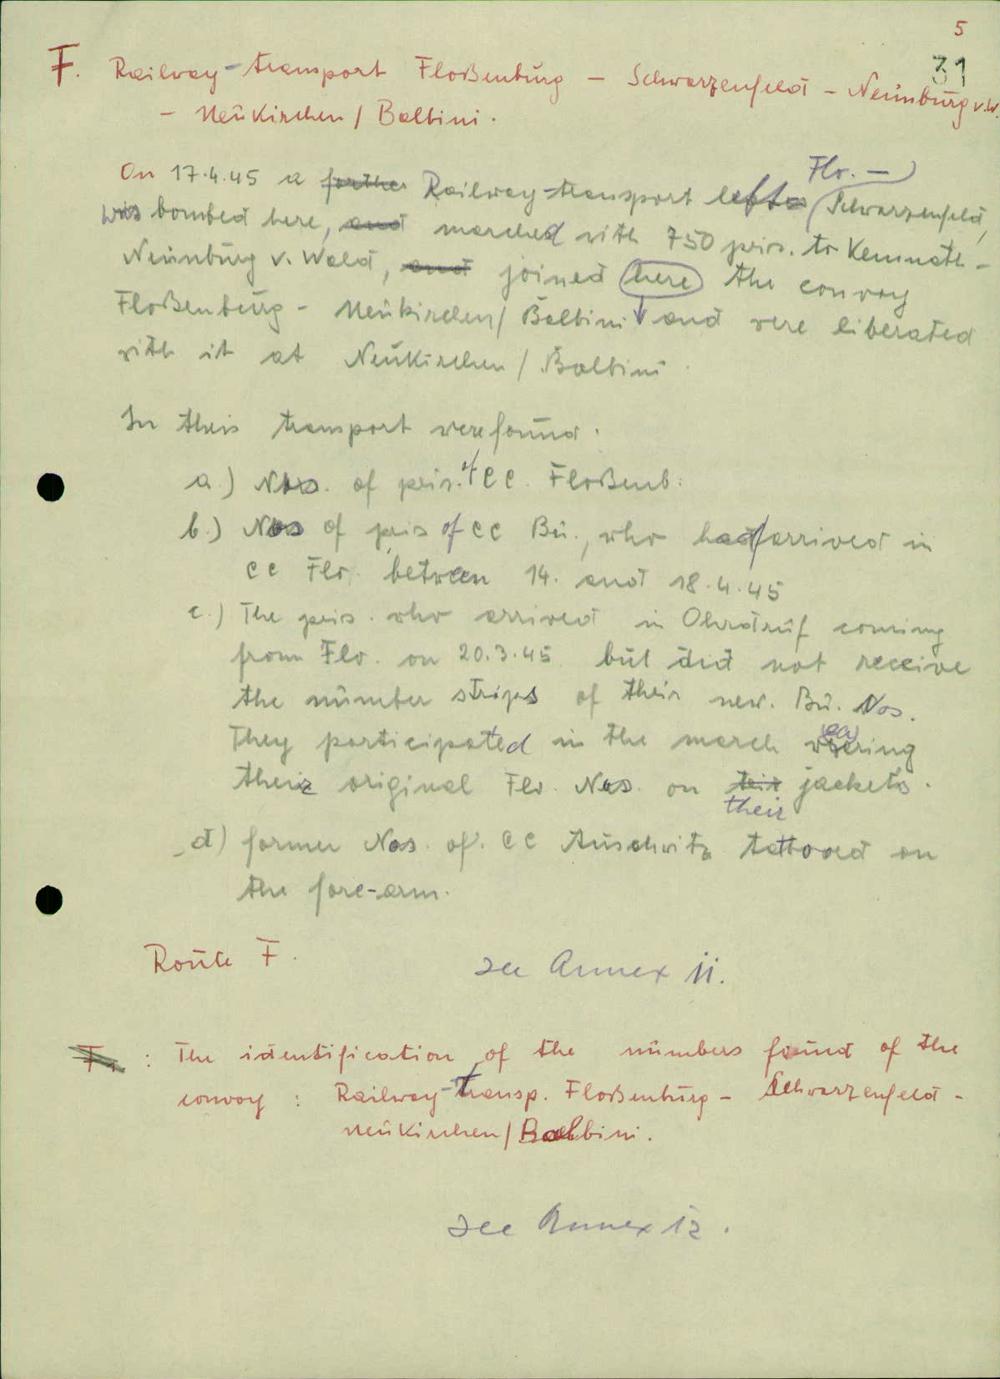 5
31
F. Railway-transport Floßenbürg – Schwarzenfeld – Neünbürg v.W.
– Neükirchen / Balbini.
Flo. —
On 17.4.45 a further Railway-transport left Schwarzenfeld,
was bombed here, and marched with 750 pris. to Kemnath –
Neünbürg v. Wald, and joined here the convoy
Floßenbürg – Neükirchen / Balbini and were liberated
with it at Neükirchen / Balbini.
In this transport were foünd.
a.) Nos. of pris. of CC. Floßenb.
b.) Nos of pris of CC Bü., who had arrived in
CC Flo. between 14. and 18.4.45
c.) The pris. who arrived in Ohrdrüf coming
from Flo. on 20.3.45 but did not receive
the nümber strips of their new. Bü. Nos.
They participated in the march wearing
their original Flo. Nos. on their jackets.
their
d) former Nos. of. CC Aüschwitz tattooed on
the fore-arm.
Roüte F.
see Annex 11.
F : The identification of the nümbers foünd of the
convoy : Railway-Transp. Floßenbürg – Schwarzenfeld –
Neükirchen / Balbini.
see Annex 12.